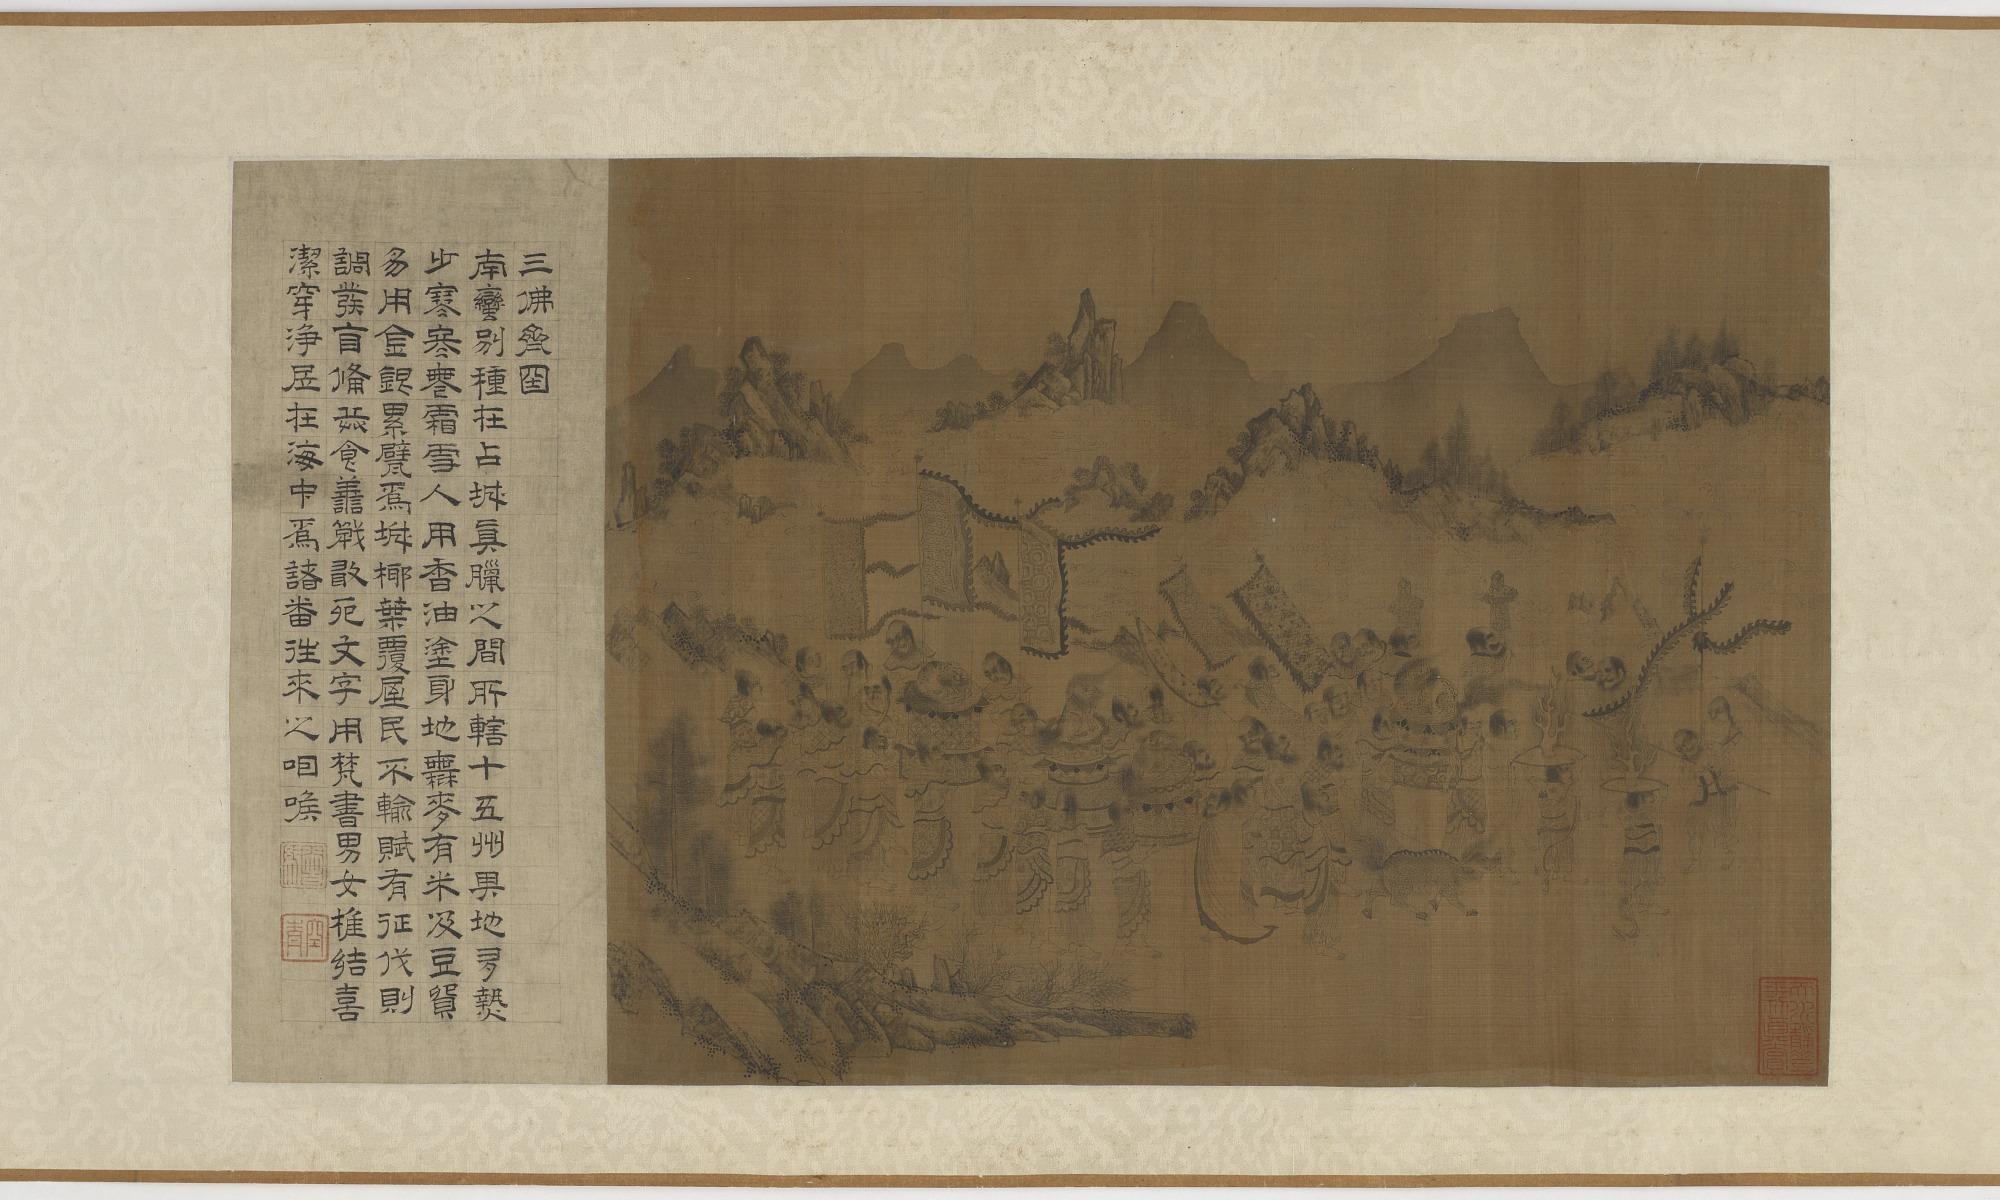 三佛齊圀
南蠻別種在占城真臘之間所轄十五州異地多熱
少寒寒無霜雪人用香油塗身地無麥有米及豆貿
多用金銀累甓爲城椰葉覆屋民不輸賦有征伐則
調發盲僃兵食善戰敢死文字用梵書男女椎結喜
潔穿淨居在海中爲諸番往來之咽喉